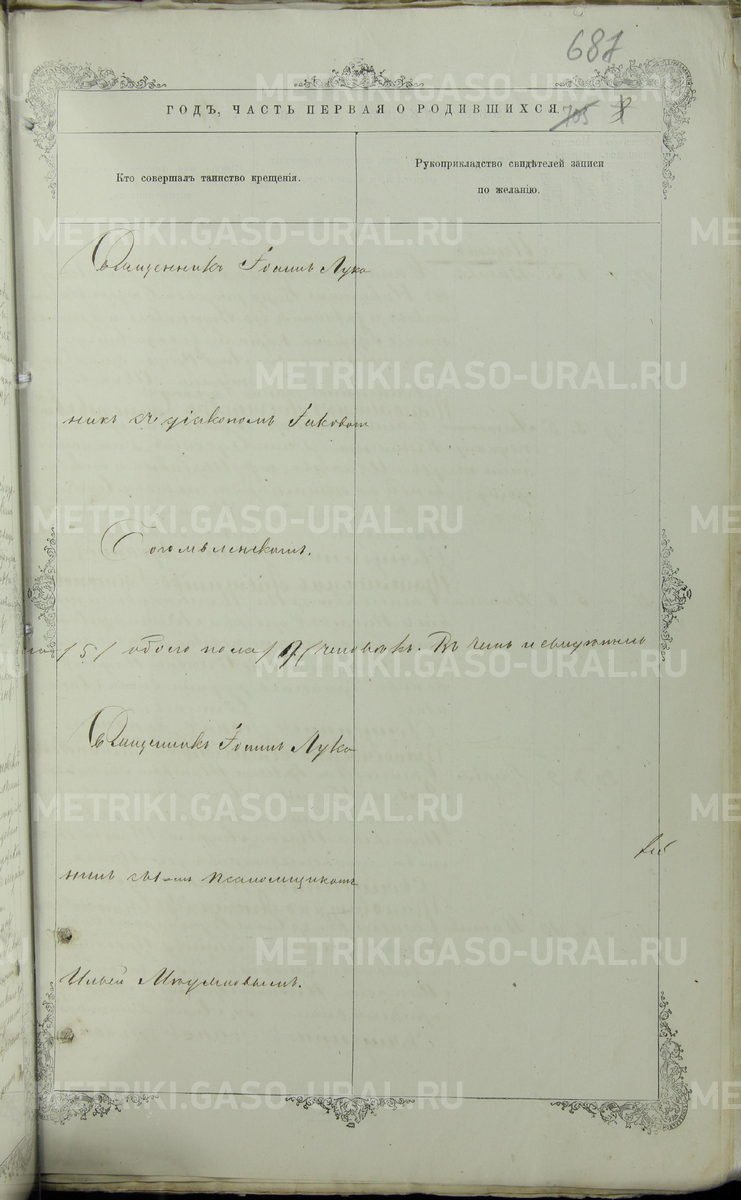 687
ГОДЪ, ЧАСТЬ ПЕРВАЯ О РОДИВШИХСЯ.
705
Кто совершалъ таинство крещенія.
Рукоприкладство свидѣтелей записи
по желанію.
Священникъ Іоаннъ Лука
нинъ съ діакономъ Іаковомъ
Богоявленскимъ.
/5/ обоего пола /9/ человѣкъ. Въ чемъ и свидѣтель
Священникъ Іоаннъ Лука
нинъ съ псаломщикомъ
Ильей
METRIKI.GASO-URAL.RU